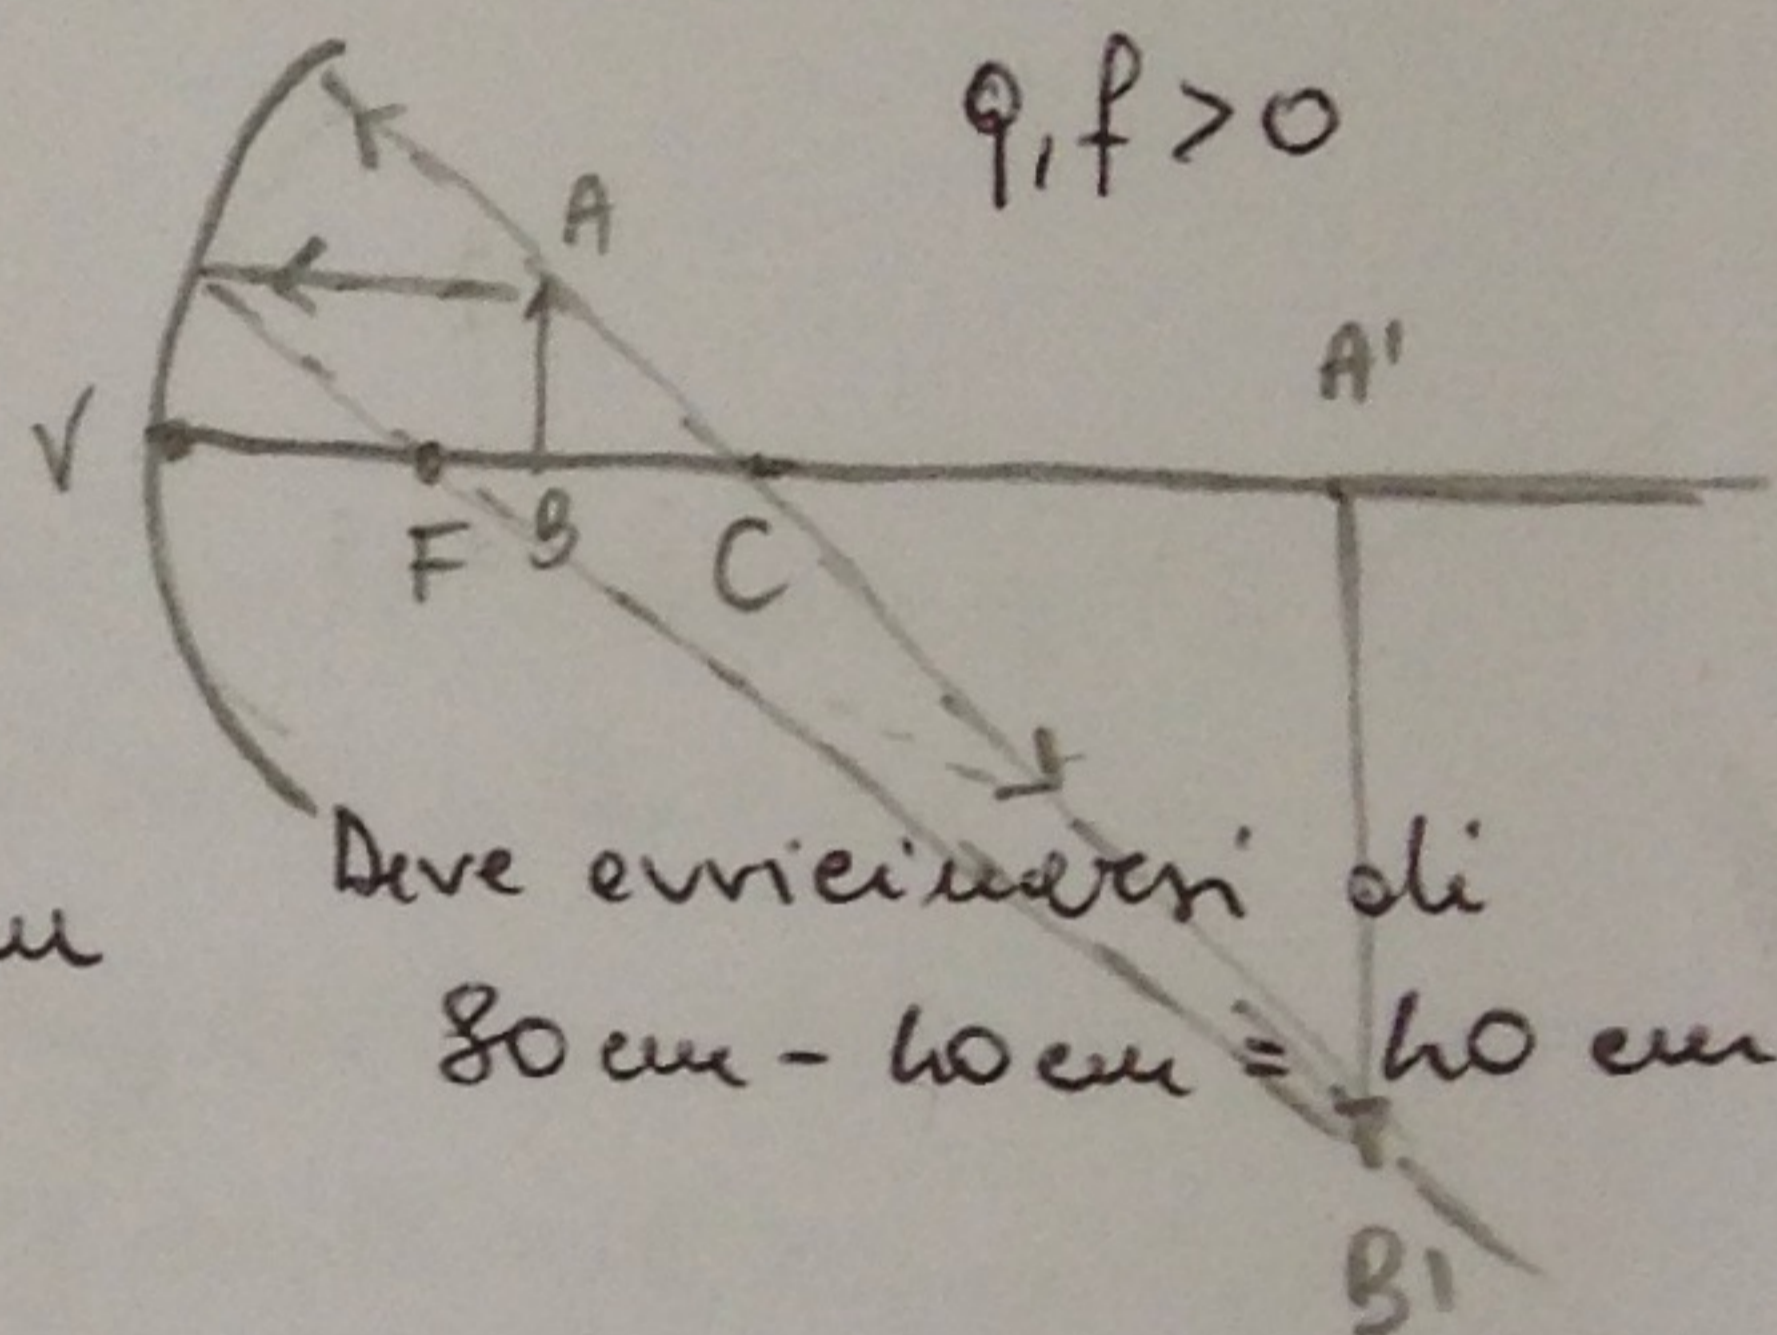 q, f > 0
A
A'
V
F B C
Deve avvicinarsi di
80 cm - 40 cm = 40 cm
B'